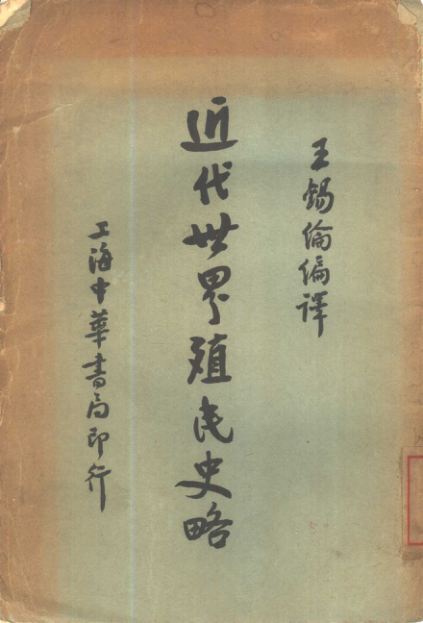 王錫綸編譯
近代世界殖民史略
上海中華書局印行